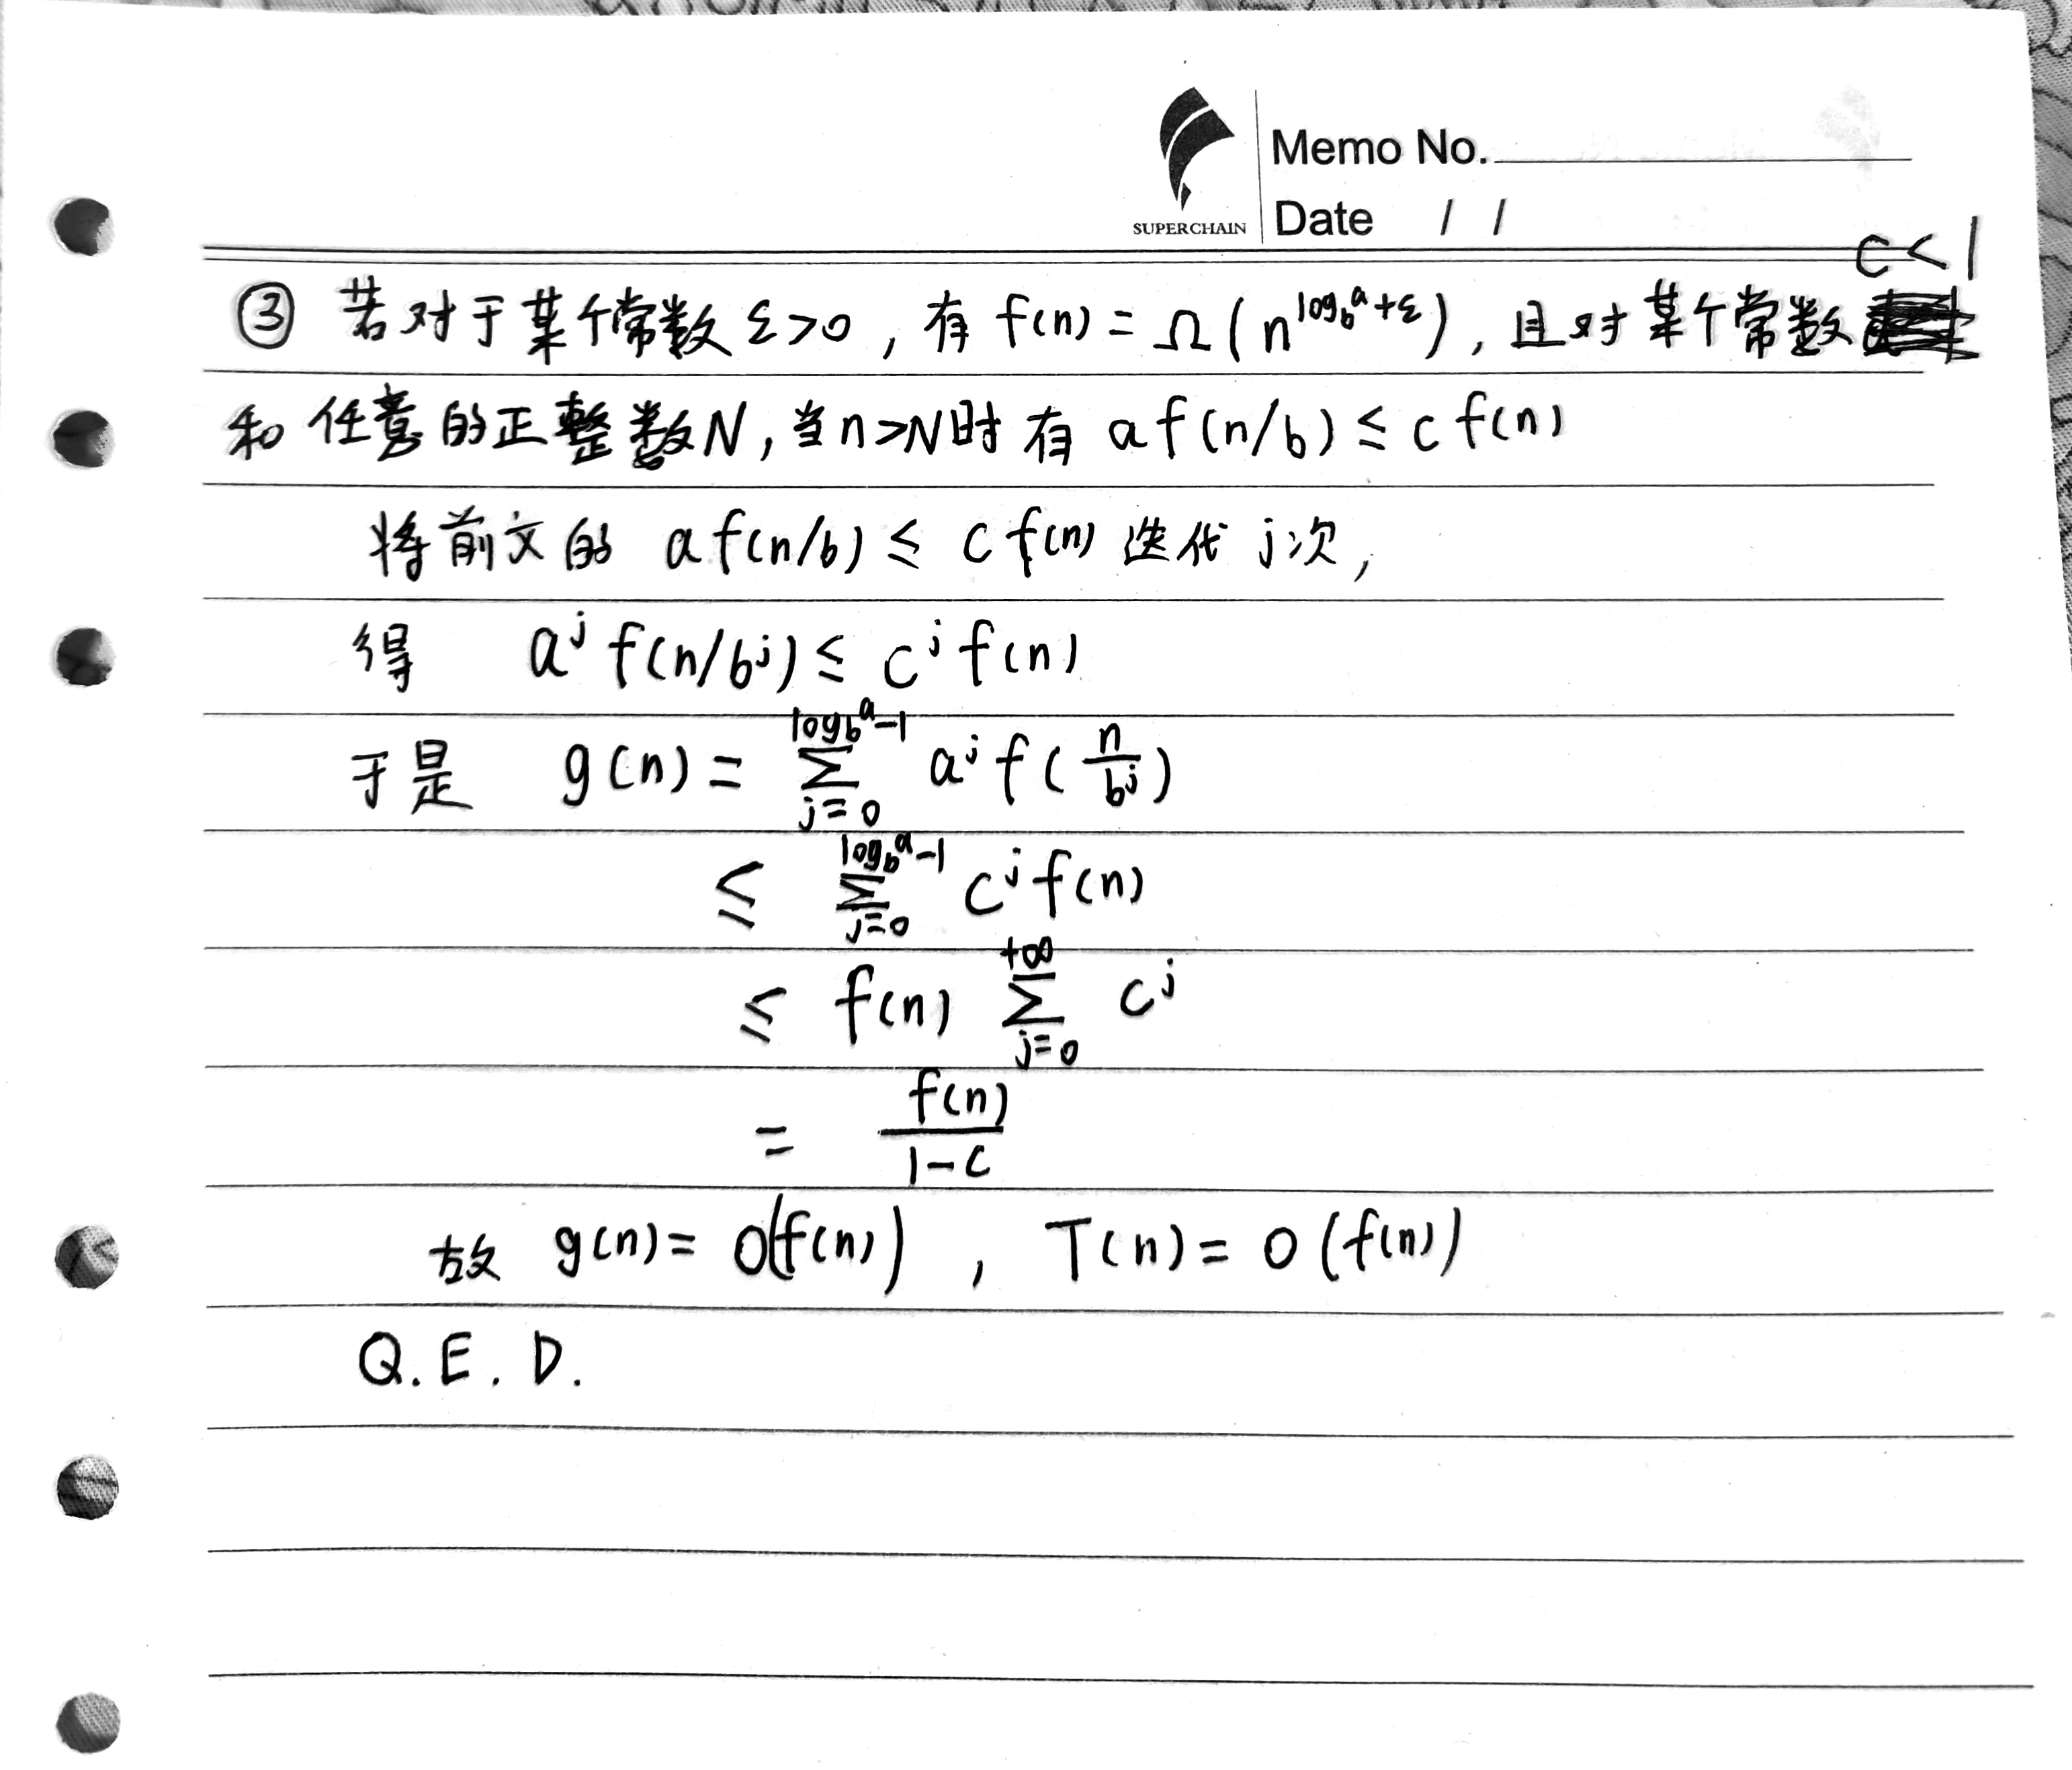 Memo No.
SUPERCHAIN
Date / /
c<1
③ 若对于某个常数 ε>0, 有 f(n) = Ω(n^{log_b^a+ε}), 且对于某个常数
和任意的正整数N, 当n>N时有 a f(n/b) ≤ c f(n)
将前文的 a f(n/b) ≤ c f(n) 迭代 j次,
得 a^j f(n/b^j) ≤ c^j f(n)
于是 g(n) = ∑_{j=0}^{log_b^a-1} a^j f(n/b^j)
≤ ∑_{j=0}^{log_b^a-1} c^j f(n)
≤ f(n) ∑_{j=0}^{+∞} c^j
= f(n)/(1-c)
故 g(n) = O(f(n)), T(n) = O(f(n))
Q.E.D.